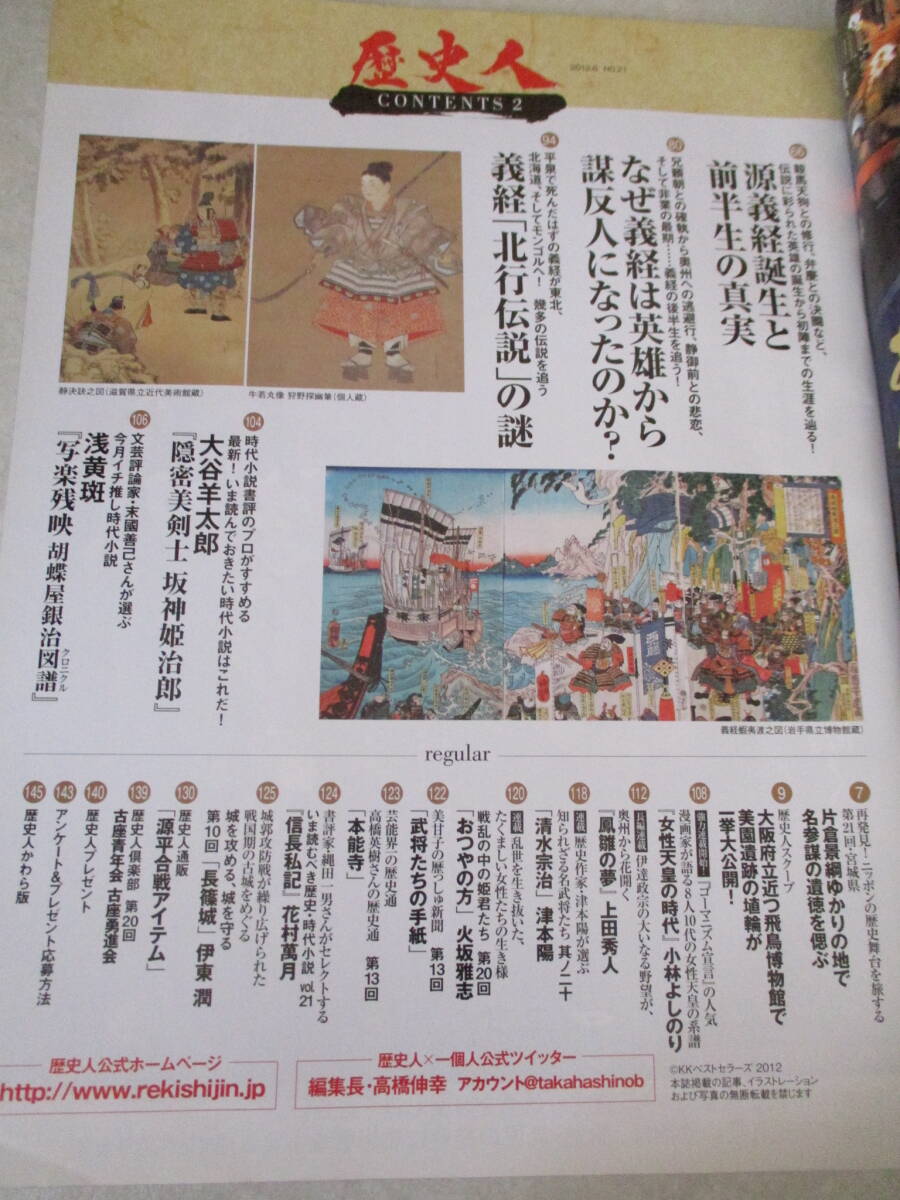 歴史人
CONTENTS 2
2012.6 NO.21
66
鞍馬天狗との修行、弁慶との決闘など、
伝説に彩られた英雄の誕生から初陣までの生涯を辿る！
源義経誕生と
前半生の真実
80
兄頼朝との確執から奥州への逃避行、静御前との悲恋、
そして非業の最期……義経の後半生を追う！
なぜ義経は英雄から
謀反人になったのか？
94
平泉で死んだはずの義経が東北、
北海道、そしてモンゴルへ！　幾多の伝説を追う
義経「北行伝説」の謎
静決訣之図（滋賀県立近代美術館蔵）
牛若丸像 狩野探幽筆（個人蔵）
104
時代小説書評のプロがすすめる
最新！いま読んでおきたい時代小説はこれだ！
大谷羊太郎
『隠密美剣士 坂神姫治郎』
106
文芸評論家・末國善己さんが選ぶ
今月イチ推し時代小説
浅黄斑
『写楽残映 胡蝶屋銀治図譜』
クロニクル
義経蝦夷渡之図（岩手県立博物館蔵）
regular
7
再発見！ニッポンの歴史舞台を旅する
第21回・宮城県
片倉景綱ゆかりの地で
名参謀の遺徳を偲ぶ
9
歴史人スクープ
大阪府立近つ飛鳥博物館で
美園遺跡の埴輪が
一挙大公開！
108
『ゴーマニズム宣言』の人気
漫画家が語る8人10代の女性天皇の系譜
『女性天皇の時代』小林よしのり
112
伊達政宗の大いなる野望が、
奥州から花開く
『鳳雛の夢』上田秀人
118
歴史作家・津本陽が選ぶ
知られざる名武将たち 其ノ二十
「清水宗治」津本陽
120
連載 乱世を生き抜いた、
たくましい女性たちの生き様
戦乱の中の姫君たち 第20回
「おつやの方」火坂雅志
122
美甘子の歴っしゅ新聞
「武将たちの手紙」 第13回
123
芸能界一の歴史通
高橋英樹さんの歴史通　第13回
「本能寺」
124
書評家・縄田一男さんがセレクトする
いま読むべき歴史・時代小説 vol.21
『信長私記』花村萬月
125
城郭攻防戦が繰り広げられた
戦国期の古城をめぐる
城を攻める、城を守る
第10回「長篠城」伊東 潤
130
歴史人通販
「源平合戦アイテム」
139
歴史人倶楽部 第20回
古座青年会 古座勇進会
140
歴史人プレゼント
143
アンケート&プレゼント応募方法
145
歴史人かわら版
歴史人公式ホームページ
http://www.rekishijin.jp
歴史人×一個人公式ツイッター
編集長・高橋伸幸　アカウント@takahashinob
©KKベストセラーズ 2012
本誌掲載の記事、イラストレーション
および写真の無断転載を禁じます